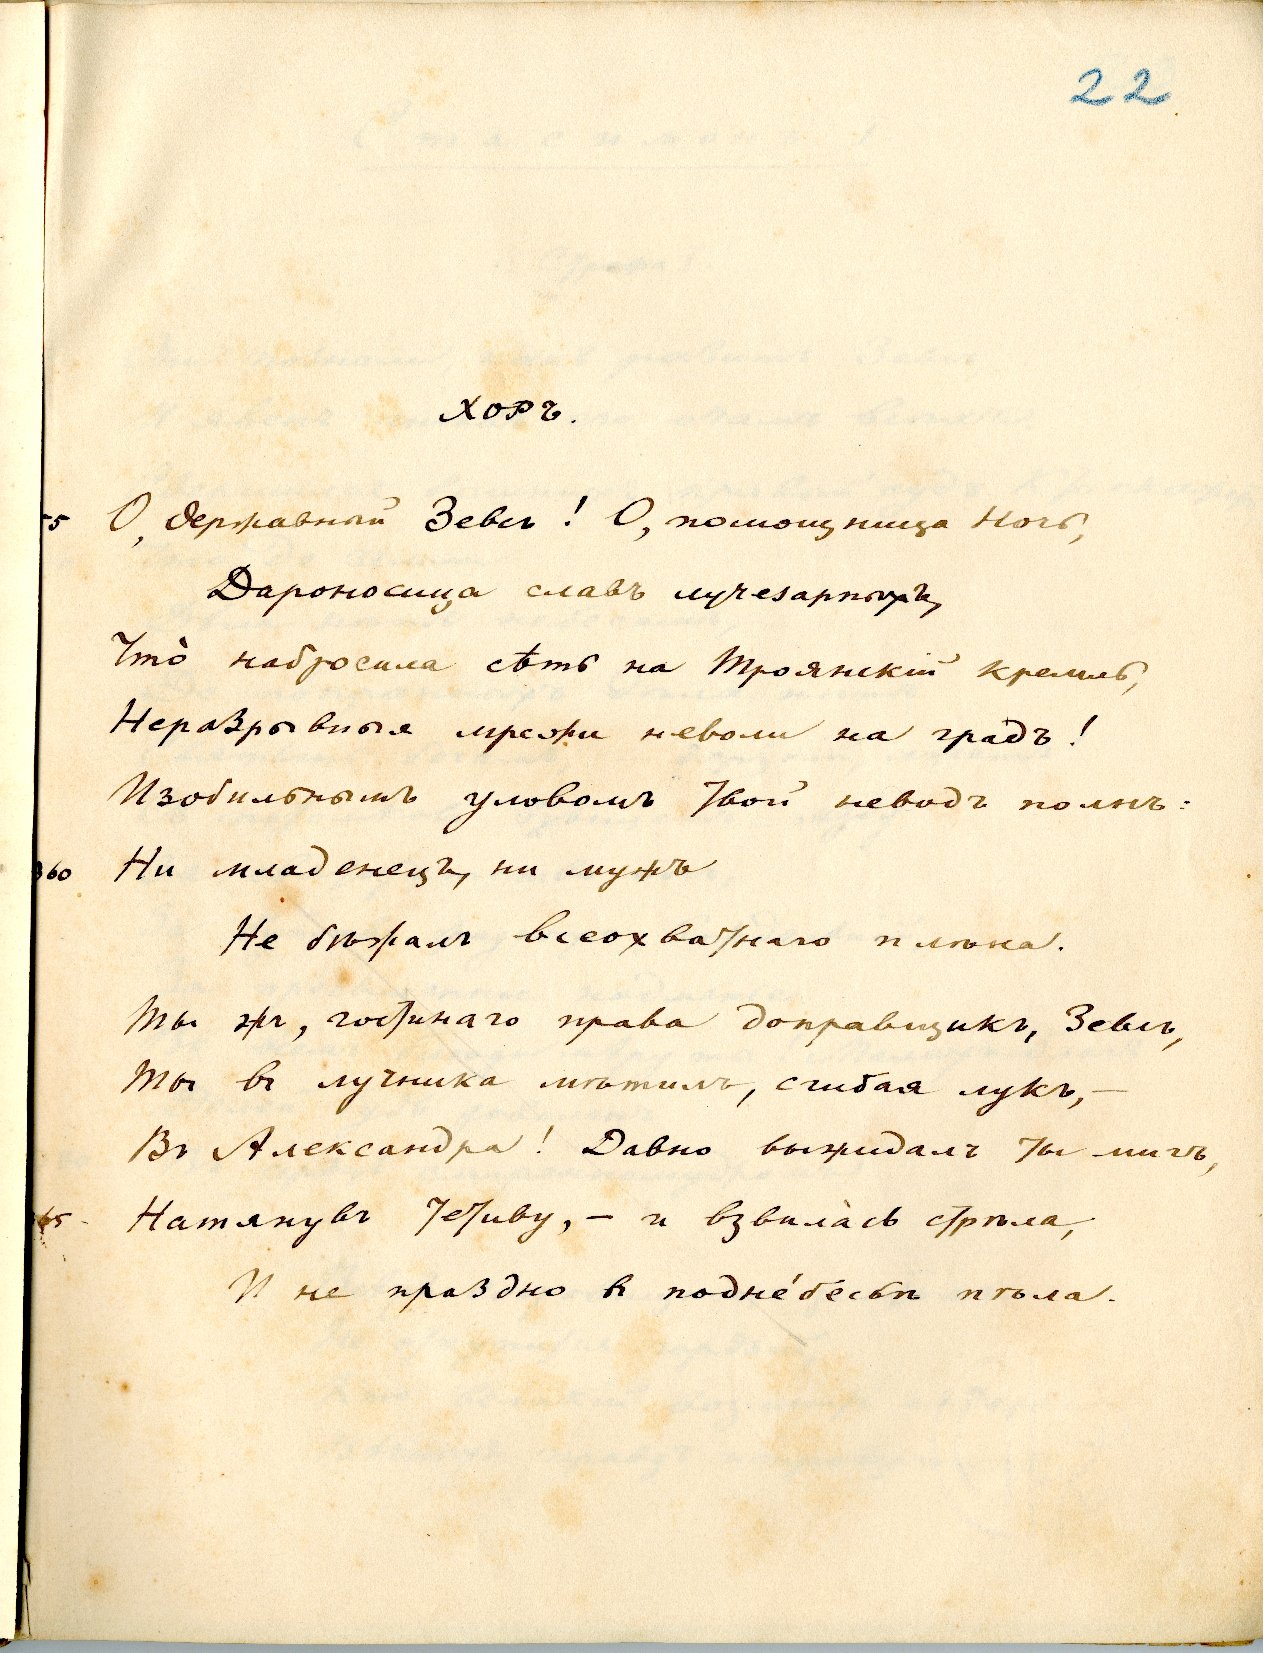 22
ХОРЪ.
55 О, державный Зевсъ! О, помощница Ночь,
Дароносица славъ лучезарныхъ,
Что̀ набросила сѣть на Троянскій кремль,
Неразрывныя мрежи неволи на градъ!
Изобильнымъ уловомъ твой неводъ полнъ:
360 Ни младенецъ, ни мужъ
Не бѣжалъ всеохватнаго плѣна.
Ты жъ, гостинаго права доправщикъ, Зевсъ,
Ты въ лучника мѣтилъ, сгибая лукъ,—
Въ Александра! Давно выжидалъ ты мигъ,
65 Натянувъ тетиву,— и взвила́сь стрѣла,
И не праздно въ подне́бесьѣ пѣла.